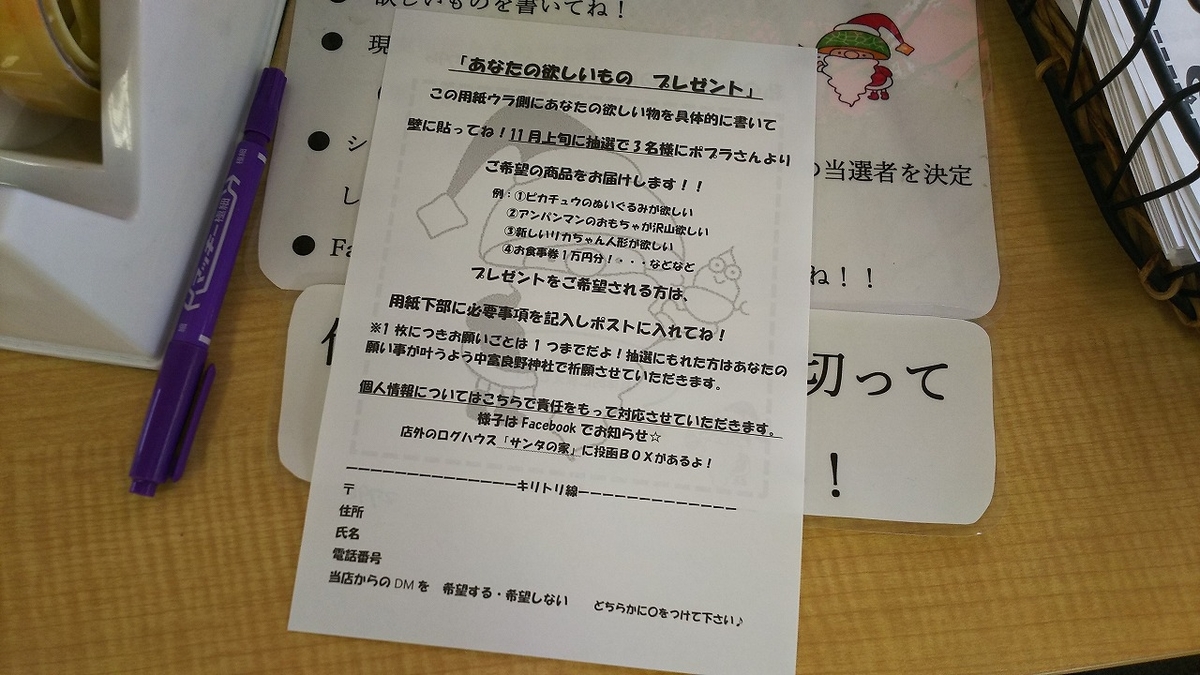 欲しいものを書いてね！
現
シ
の当選者を決定
し
Fa
ね！！
切って
！
「あなたの欲しいもの　プレゼント」
この用紙ウラ側にあなたの欲しい物を具体的に書いて
壁に貼ってね！11月上旬に抽選で3名様にポプラさんより
ご希望の商品をお届けします！！
例：①ピカチュウのぬいぐるみが欲しい
②アンパンマンのおもちゃが沢山欲しい
③新しいリカちゃん人形が欲しい
④お食事券1万円分！・・・などなど
プレゼントをご希望される方は、
用紙下部に必要事項を記入しポストに入れてね！
※1枚につきお願いごとは1つまでだよ！抽選にもれた方はあなたの
願い事が叶うよう中富良野神社で祈願させていただきます。
個人情報についてはこちらで責任をもって対応させていただきます。
様子はFacebookでお知らせ☆
店外のログハウス「サンタの家」に投函BOXがあるよ！
ーーーーーーーーーーーーーキリトリ線ーーーーーーーーーーーー
〒
住所
氏名
電話番号
当店からのDMを　希望する・希望しない　　どちらかに○をつけて下さい♪